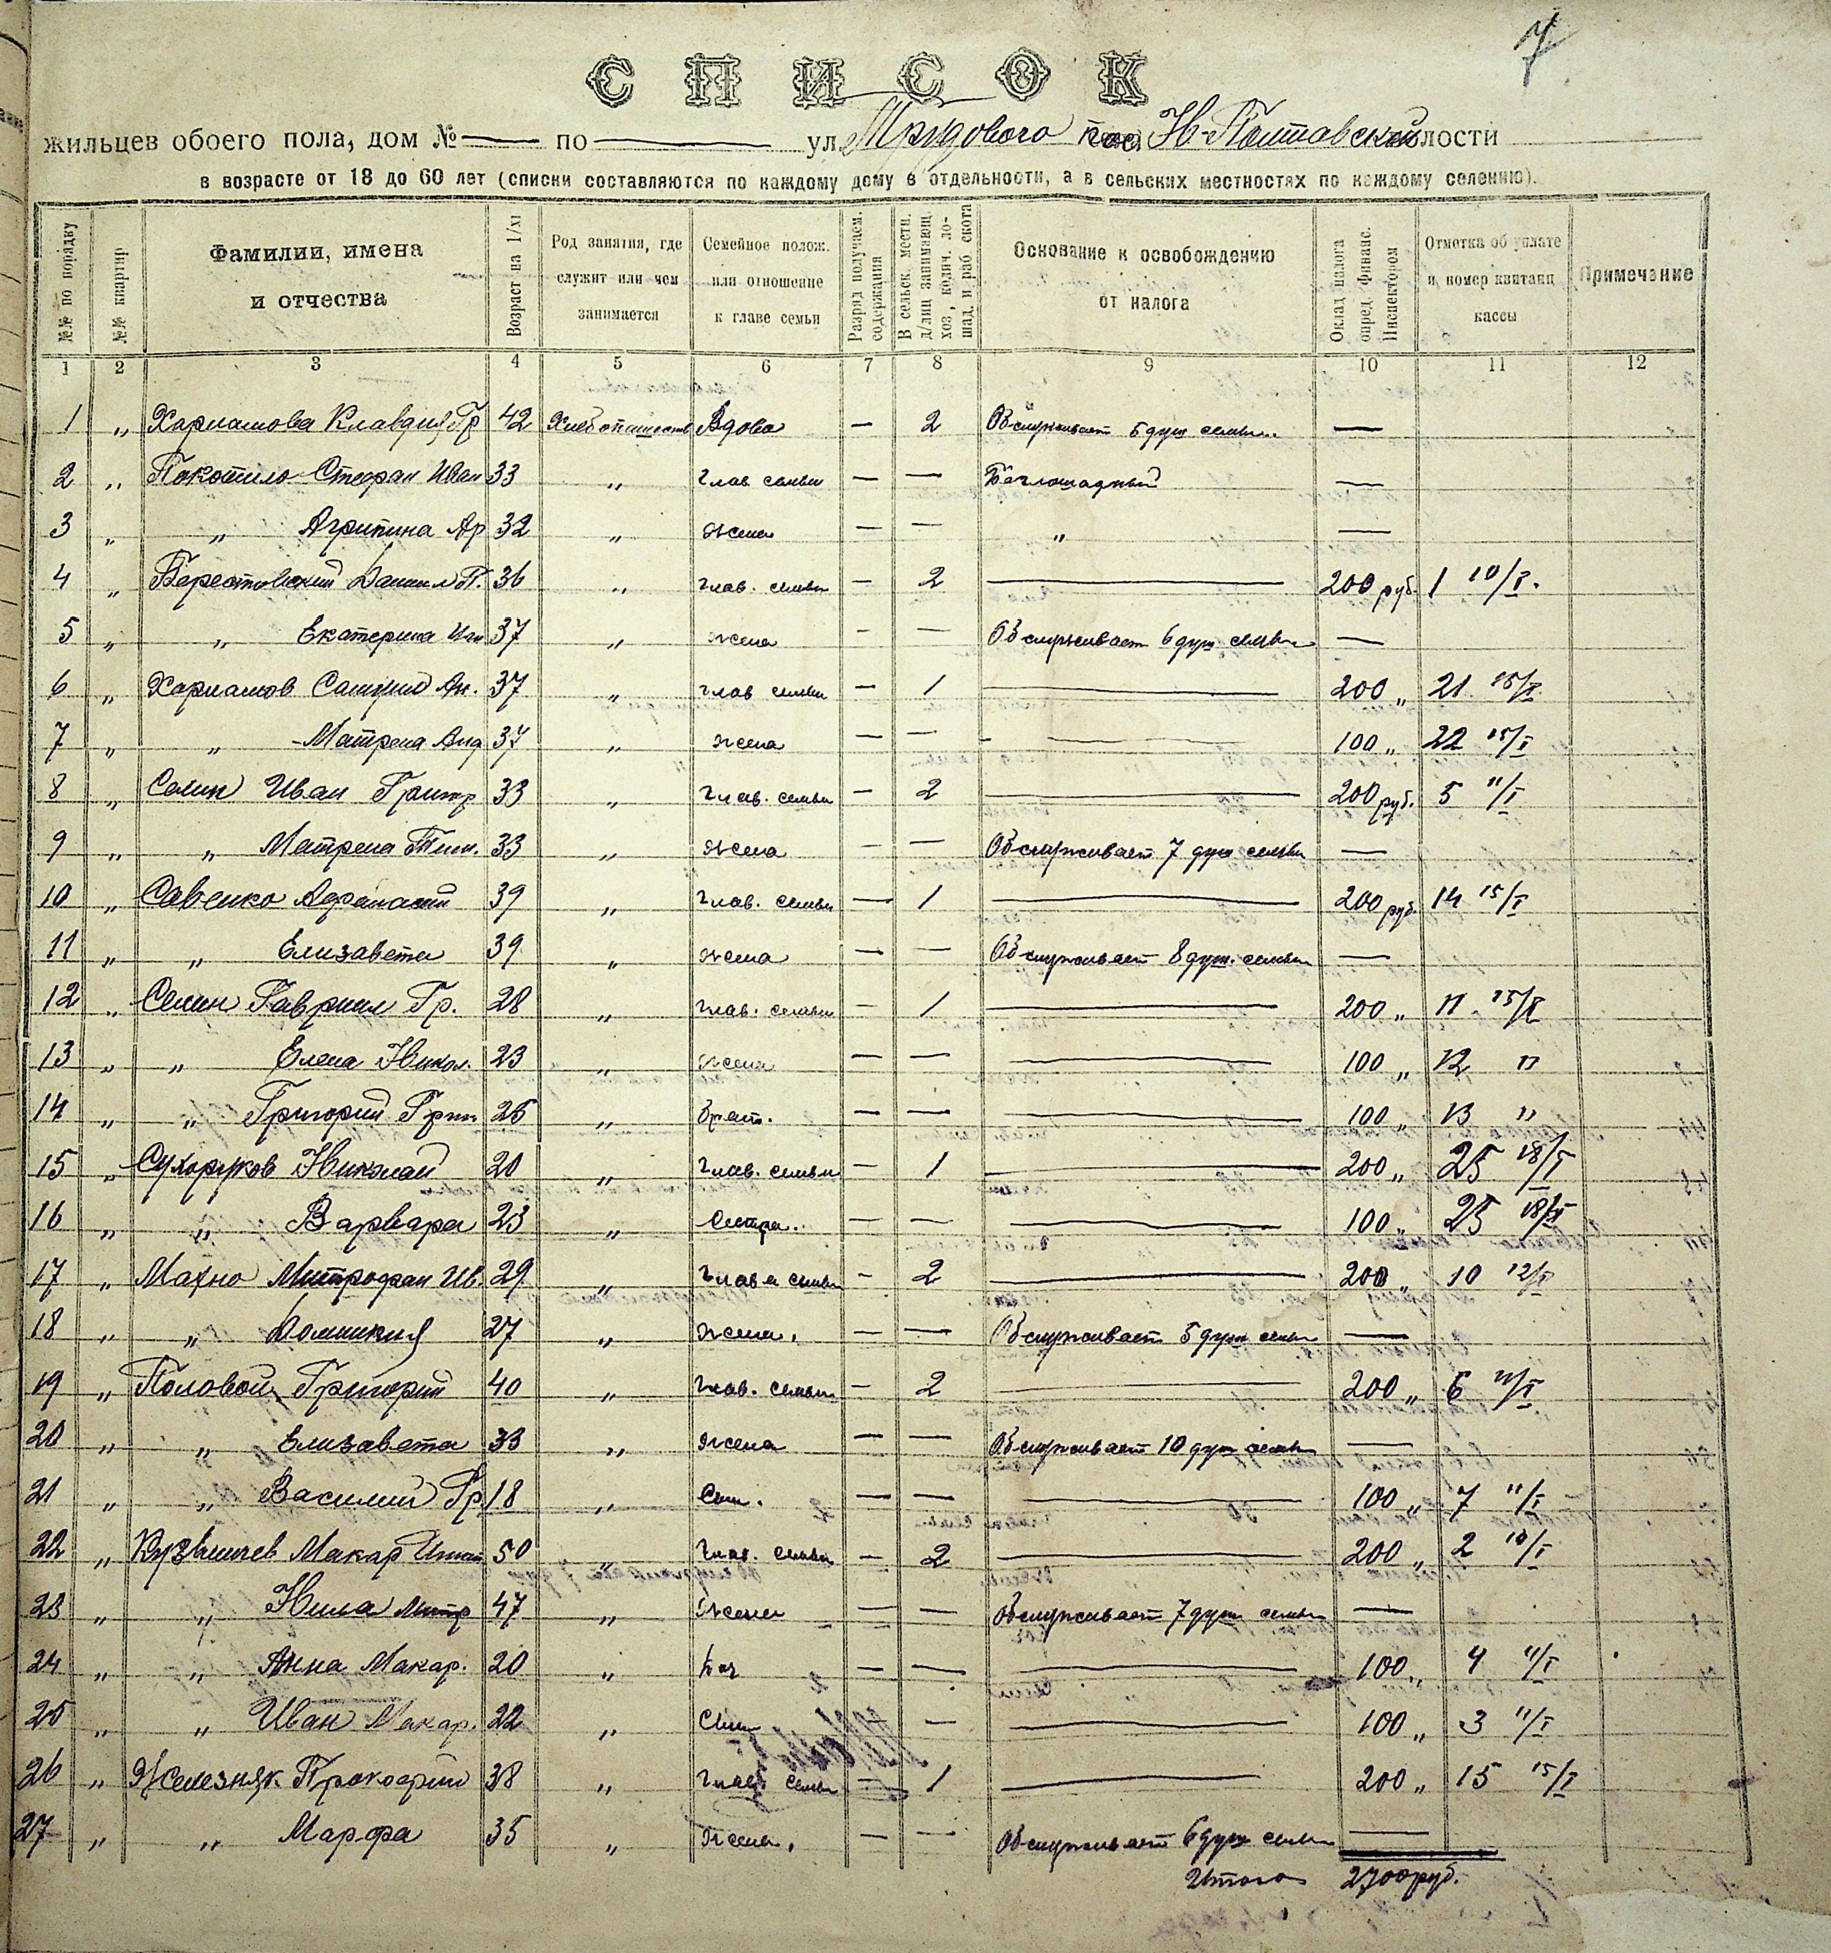 7
СПИСОК
жильцев обоего пола, дом № — по — ул. Трудового пос. Н-Полтавской волости
в возрасте от 18 до 60 лет (списки составляются по каждому дому в отдельности, а в сельских местностях по каждому селению).
№№ по порядку | №№ квартир | Фамилии, имена и отчества | Возраст на 1/XI | Род занятия, где служит или чем занимается | Семейное полож. или отношение к главе семьи | Разряд получаем. содержания | В сельск. местн. д/лиц занимающ. хоз, колич. лошад. и раб скота | Основание к освобождению от налога | Оклад налога опред. финанс. Инспектором | Отметка об уплате и номер квитанц кассы | Примечание
1 2 3 4 5 6 7 8 9 10 11 12
1 „ Харламова Клавдия Гр 42 Хлебопашеств Вдова — 2 Обслуживает 5 душ семьи. —
2 „ Покотило Стефан Иван 33 „ глав семьи — — Безлошадный —
3 „ „ Агрипина Ар 32 „ жена — — „ —
4 „ Берестовский Данил П. 36 „ глав. семьи — 2 — 200 руб. 1 10/I.
5 „ „ Екатерина 37 „ жена — — Обслуживает 6 душ семьи —
6 „ Харламов Ан. 37 „ глав семьи — 1 — 200 „ 21 15/I
7 „ „ Матрена Анд 37 „ жена — — — 100 „ 22 15/I
8 „ Семин Иван Григор 33 „ глав. семьи — 2 — 200 руб. 5 11/I
9 „ „ Матрена Тим. 33 „ жена — — Обслуживает 7 душ семьи —
10 „ Савенко Афанасий 39 „ глав. семьи — 1 — 200 руб. 14 15/I
11 „ „ Елизавета 39 „ жена — — Обслуживает 8 душ. семьи —
12 „ Семин Гавриил Гр. 28 „ глав. семьи — 1 — 200 „ 11 15/I
13 „ „ Елена Никол. 23 „ жена — — — 100 „ 12 "
14 „ „ Григорий Григ 25 „ брат. — — — 100 „ 13 "
15 „ Сухоруков Николай 20 „ глав. семьи — 1 — 200 „ 25 18/I
16 „ „ Варвара 23 „ Сестра. — — — 100 „ 25 18/I
17 „ Махно Митрофан Ив. 29 „ глава семьи — 2 — 200 „ 10 12/I
18 „ „ Домникия 27 „ жена. — — Обслуживает 5 душ семьи —
19 „ Половой Григорий 40 „ глав. семьи — 2 — 200 „ 6 11/I
20 „ „ Елизавета 33 „ жена — — Обслуживает 10 душ семьи —
21 „ „ Василий Гр. 18 „ Сын. — — — 100 „ 7 11/I
22 „ Кузьмичев Макар Игнат 50 „ глав. семьи — 2 — 200 „ 2 10/I
23 „ „ Нила Митр 47 „ жена — — Обслуживает 7 душ семьи —
24 „ „ Анна Макар. 20 „ доч — — — 100 „ 4 11/I
25 „ „ Иван Макар. 22 „ Сын — — — 100 „ 3 11/I
26 „ Железняк Прокофий 38 „ глав семьи — 1 — 200 „ 15 15/I
27 „ „ Марфа 35 „ жена. — — Обслуживает 6 душ семьи —
Итого 2700 руб.